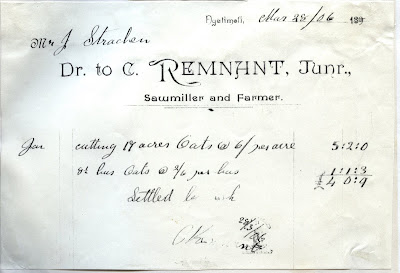 Ayetimoti, Mar 28/06 189
Mr J Strachen
Dr. to C. REMNANT, Junr.,
Sawmiller and Farmer.
Jan cutting 17 acres Oats @ 6/ per acre 5:2:0
bus Oats @ 2/6 per bus 1:1:3
4 0:9
Settled
28/
/06